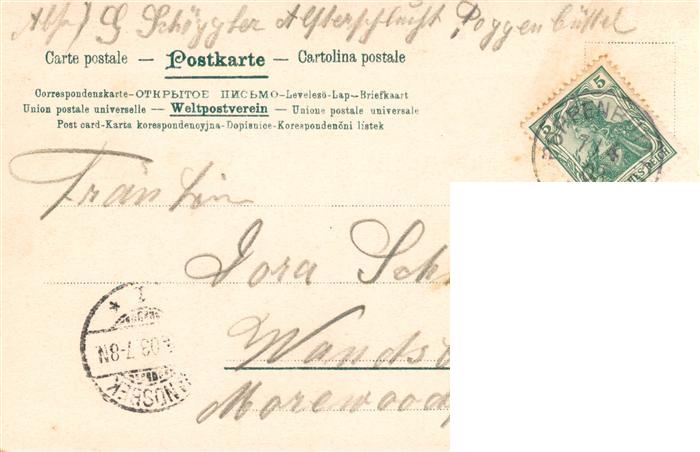 Schöggler Alsterschlucht Poggenbüttel
Carte postale — Postkarte — Cartolina postale
Correspondenzkarte–ОТКРЫТОЕ ПИСЬМО–Levelező-Lap–Briefkaart
Union postale universelle — Weltpostverein — Unione postale universale
Post card-Karta korespondencyjna-Dopisnice-Korespondenční lístek
5
Fräulein
Dora Sch
Wandsb
Morewood
03.7-8N
ANDSBEK